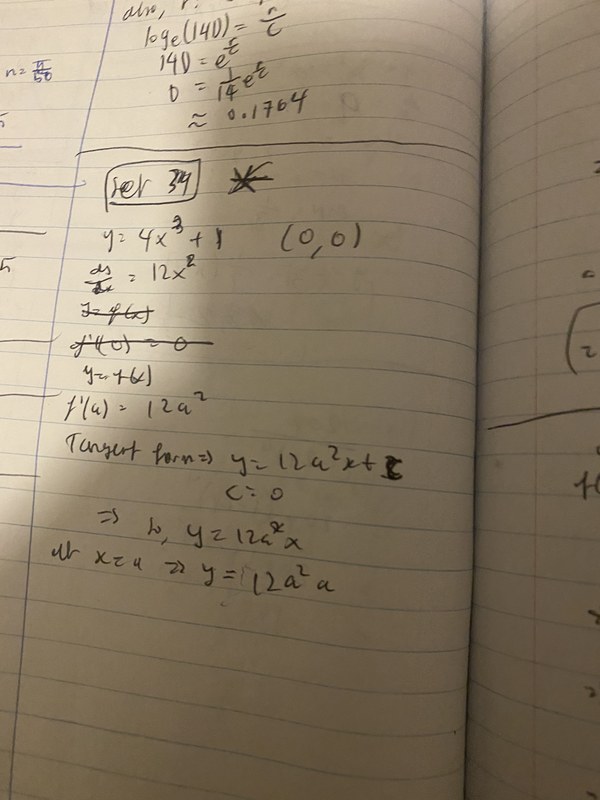 also,
n = π/50
log_e(14D) = n/c
14D = e^
D = 1/14 e^
≈ 0.1764
Set 34
y = 4x³ + 1 (0,0)
dy/dx = 12x²
y = f(x)
f'(0) = 0
y = f(x)
f'(a) = 12a²
Tangent form ⇒ y = 12a²x + c
c = 0
⇒ so, y = 12a²x
at x = a ⇒ y = 12a² a